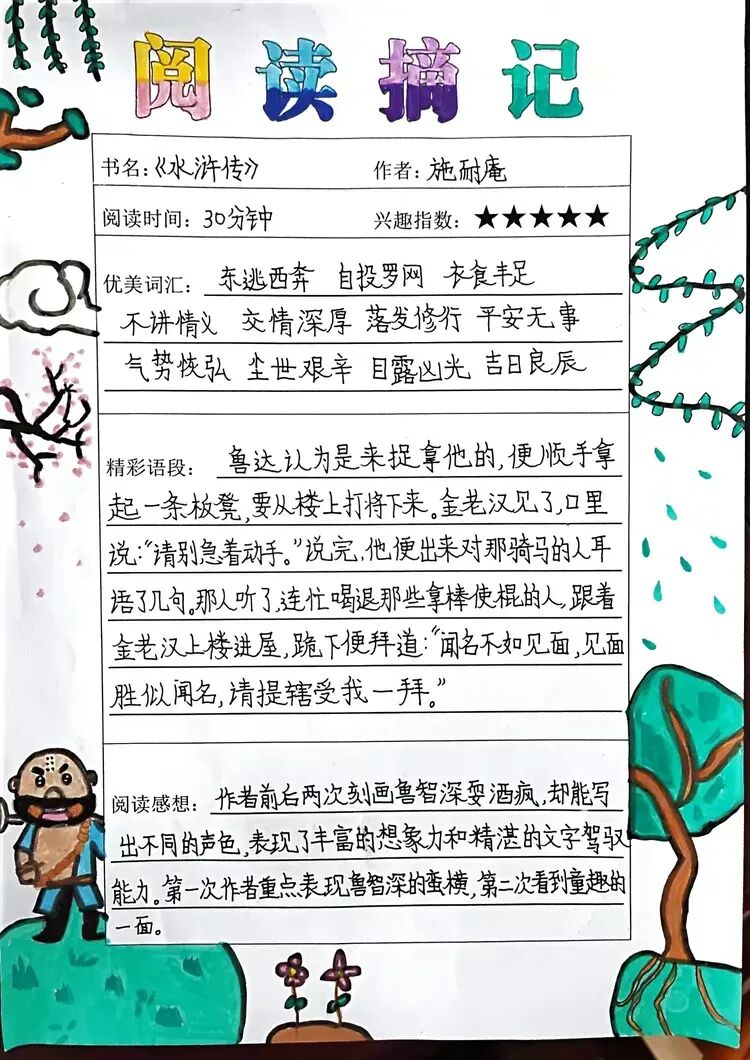 阅读摘记
书名:《水浒传》 作者: 施耐庵
阅读时间: 30分钟 兴趣指数: ★★★★★
优美词汇: 东逃西奔 自投罗网 衣食丰足
不讲情义 交情深厚 落发修行 平安无事
气势恢弘 尘世艰辛 目露凶光 吉日良辰
精彩语段: 鲁达认为是来捉拿他的,便顺手拿
起一条板凳,要从楼上打将下来。金老汉见了,口里
说:“请别急着动手。”说完,他便出来对那骑马的人耳
语了几句。那人听了,连忙喝退那些拿棒使棍的人,跟着
金老汉上楼进屋,跪下便拜道:“闻名不如见面,见面
胜似闻名,请提辖受我一拜。”
阅读感想: 作者前后两次刻画鲁智深耍酒疯,却能写
出不同的声色,表现了丰富的想象力和精湛的文字驾驭
能力。第一次作者重点表现鲁智深的蛮横,第二次看到童趣的
一面。